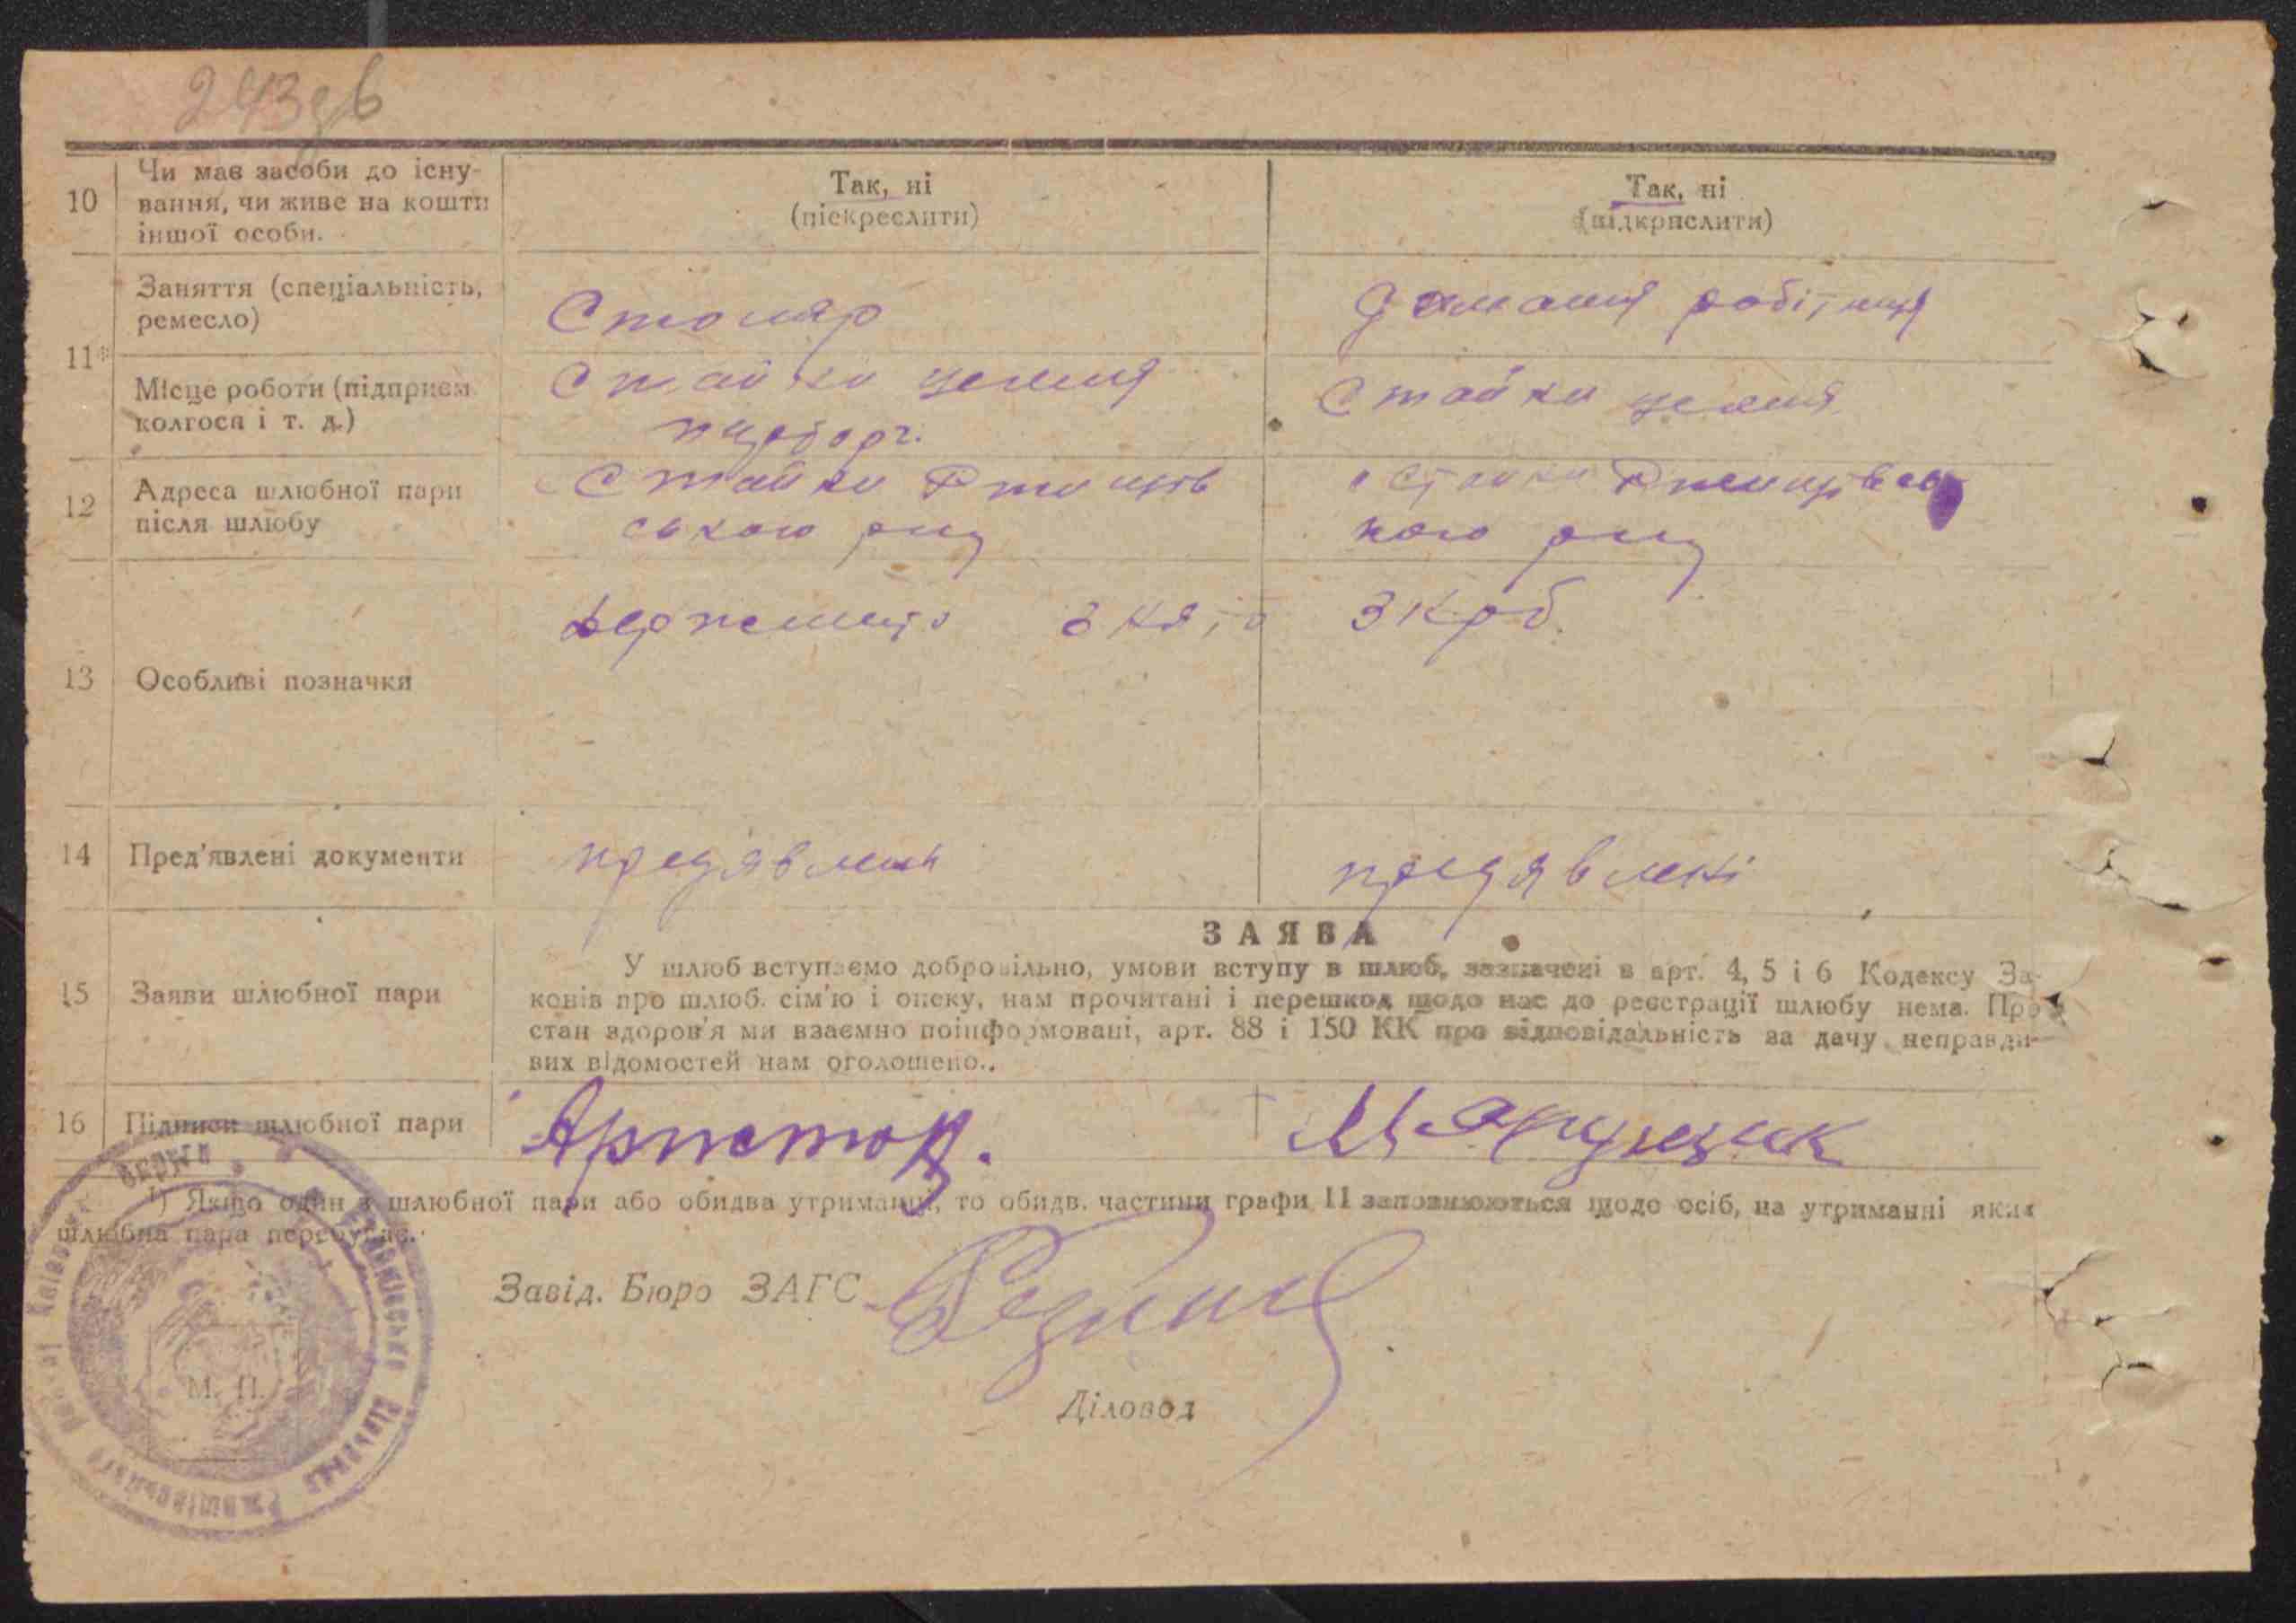 243зв
10 Чи має засоби до існу-
вання, чи живе на кошти
іншої особи.
Так, ні
(піскреслити)
Так, ні
(відкрислити)
11*
Заняття (спеціальність,
ремесло)
Столяр
домашня робітниця
Місце роботи (підприєм
колгосп і т. д.)
Стайки цегельня
Стайки цегельня
12 Адреса шлюбної пари
після шлюбу
Стайки Ржищів
ського рну
Стайки Ржищівсь
кого рну
13 Особливі позначки
Держмито знято 3 крб.
14 Пред'явлені документи
предявлені
предявлені
ЗАЯВА
15 Заяви шлюбної пари
У шлюб вступаємо добровільно, умови вступу в шлюб, зазначені в арт. 4, 5 і 6 Кодексу За-
конів про шлюб. сім'ю і опеку, нам прочитані і перешкод щодо нас до реєстрації шлюбу нема. Про
стан здоров'я ми взаємно поінформовані, арт. 88 і 150 КК про відповідальність за дачу неправди-
вих відомостей нам оголошено..
16 Підписи шлюбної пари
¹) Якщо один з шлюбної пари або обидва утриманці, то обидв. частини графи 11 заповнюються щодо осіб, на утриманні яких
шлюбна пара перебуває.
Завід. Бюро ЗАГС
М. П.
Діловод